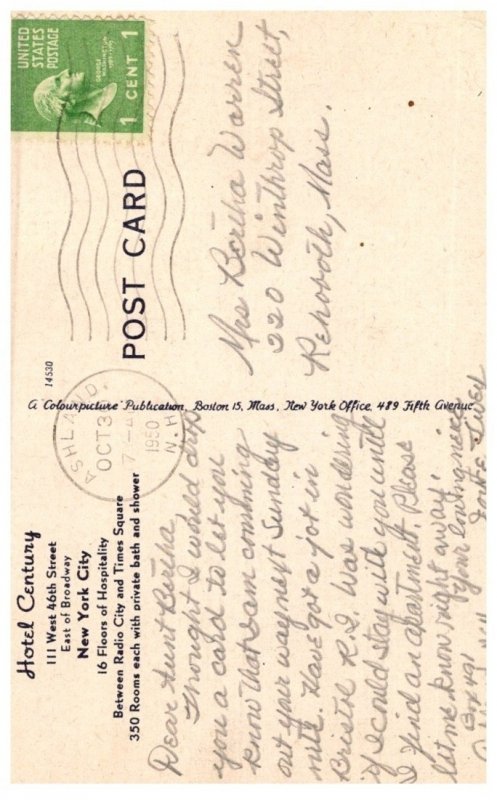 Hotel Century
111 West 46th Street
East of Broadway
New York City
16 Floors of Hospitality
Between Radio City and Times Square
350 Rooms each with private bath and shower
Dear Aunt Bertha
Thought I would drop
you a card to let you
know that I am comming
out your way next Sunday
nite. Have got a job in
Bristle R.I. Was wondering
if I could stay with you until
I find an apartment. Please
let me know right away.
Your loving niece
Box 491
14530
A "Colourpicture" Publication, Boston 15, Mass., New York Office, 489 Fifth Avenue
POST CARD
ASHLAND,
OCT 3
1950
N.H.
UNITED
STATES
POSTAGE
GEORGE
WASHINGTON
1789-1797
1 CENT 1
Mrs Bertha Warren
220 Winthrop Street,
Rehovoth, Mass.